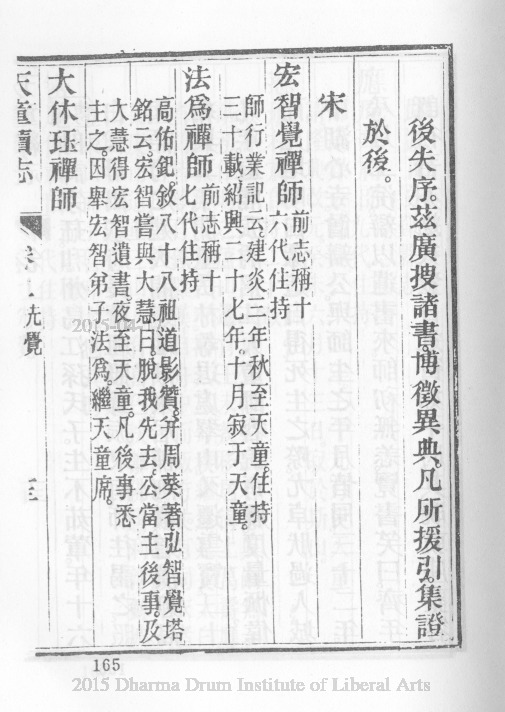 後失序。茲廣搜諸書。博徵異典。凡所援引。集證
於後。
宋
宏智覺禪師前志稱十六代住持
師行業記云。建炎三年秋至天童。住持
三十載。紹興二十七年。十月寂于天童。
法為禪師前志稱十七代住持
高佑釲敘八十八祖道影贊。并周葵著弘智覺塔
銘云。宏智嘗與大慧曰。脫我先去。公當主後事。及
大慧得宏智遺書。夜至天童。凡後事悉
主之。因舉宏智弟子法為。繼天童席。
大休珏禪師
天童續志
先覺
三
165
2015 Dharma Drum Institute of Liberal Arts